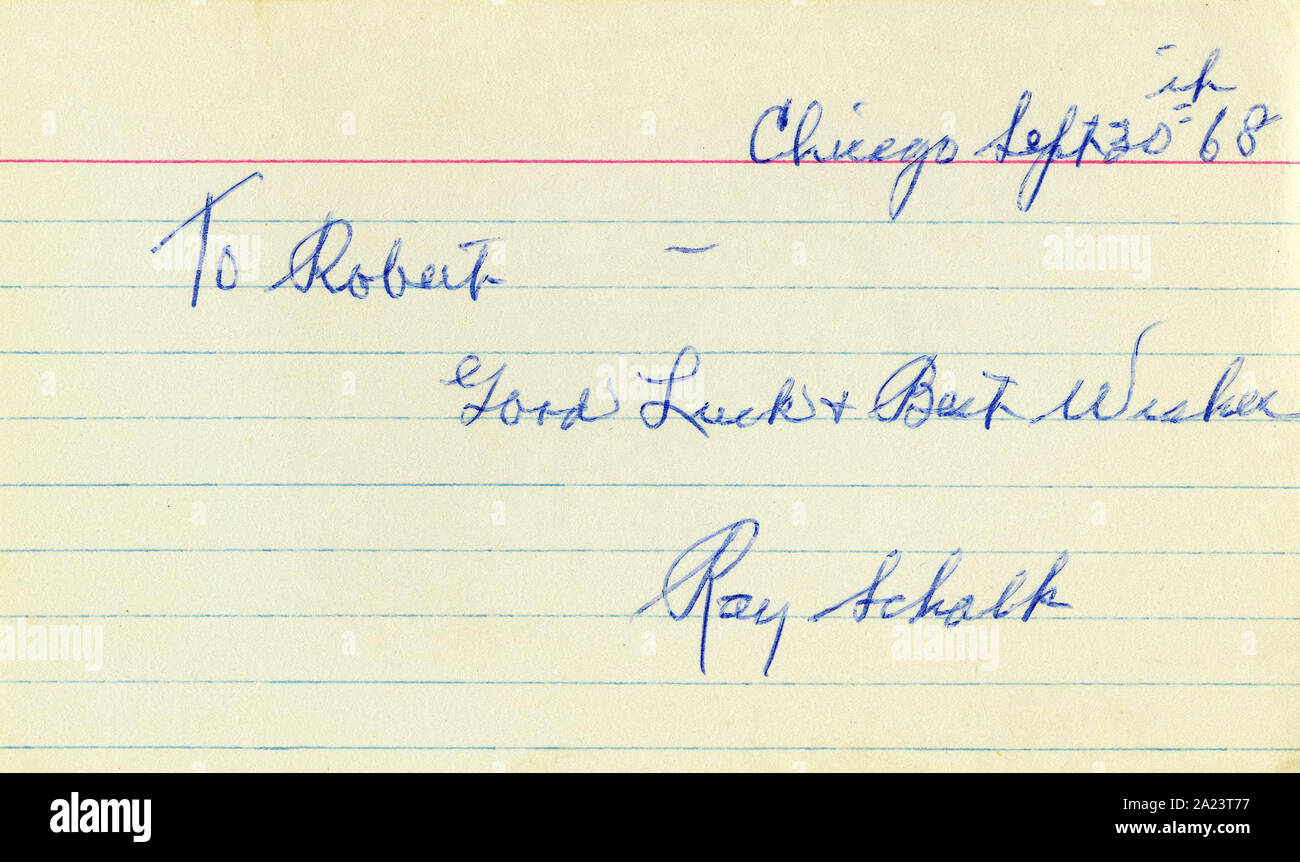 Chicago Sept 30th 68
To Robert –
Good Luck & Best Wishes
Ray Schalk
alamy
Image ID: 2A23T77
www.alamy.com